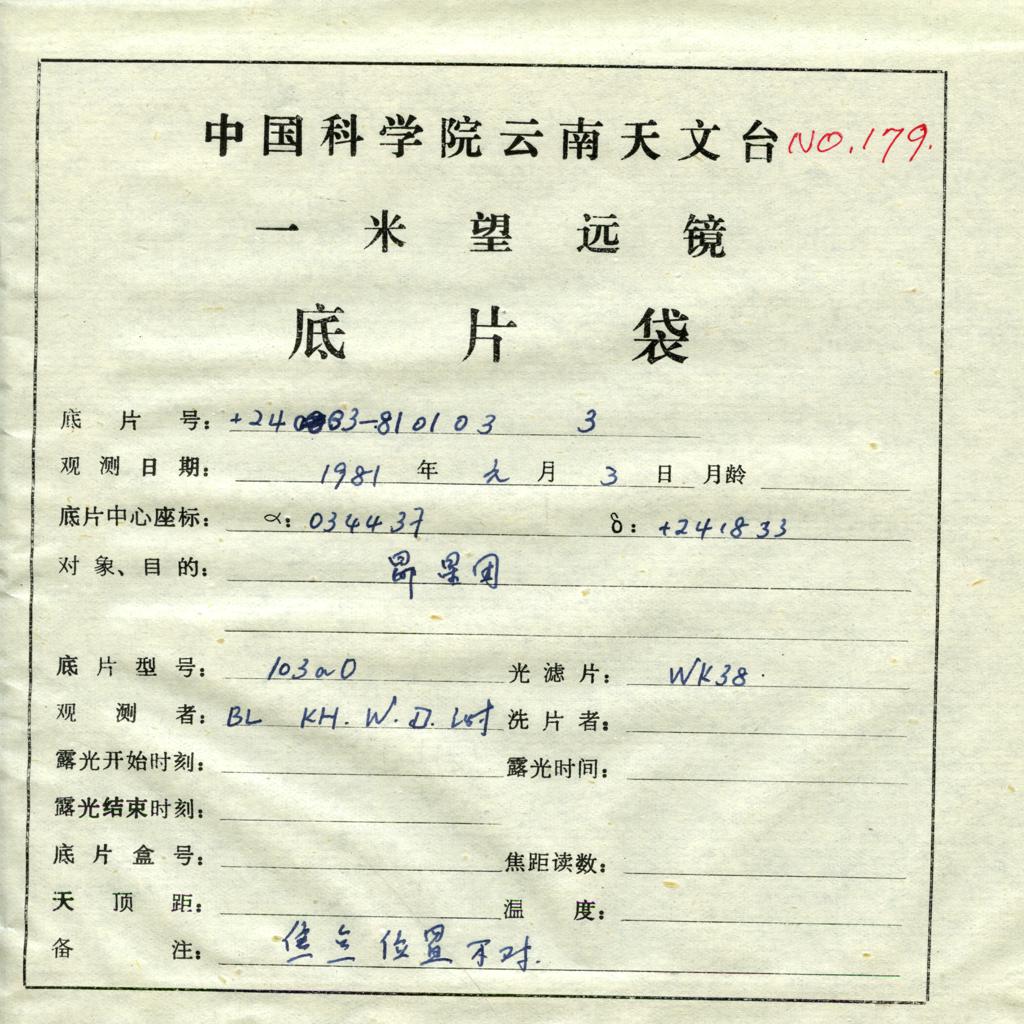 中国科学院云南天文台 NO.179.
一米望远镜
底片袋
底片号：+24083-810103 3
观测日期：1981年元月3日 月龄
底片中心座标：α：034437 δ：+241833
对象、目的：昴星团
底片型号：103aO 光滤片：WK38
观测者：BL KH. W. D. 洗片者：
露光开始时刻： 露光时间：
露光结束时刻：
底片盒号： 焦距读数：
天顶距： 温度：
备注：焦点位置不对.